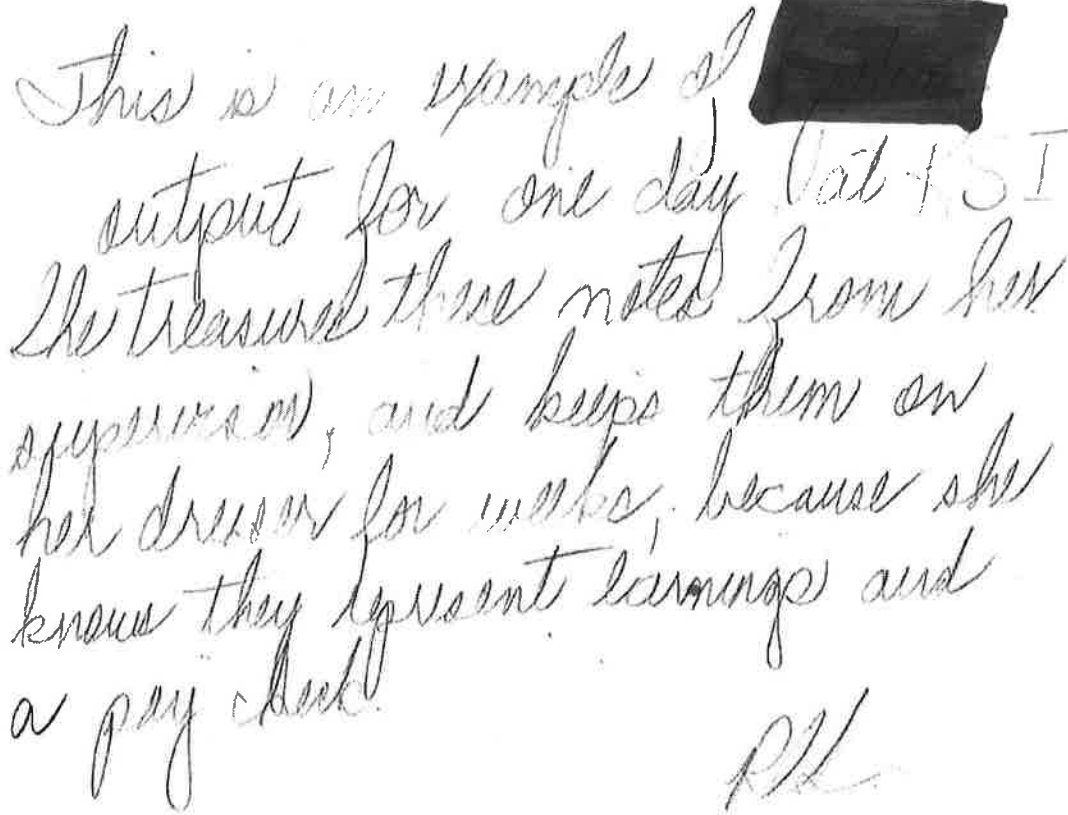 This is an example of
output for one day at KSI
She treasures these notes from her
supervisor, and keeps them on
her dresser for weeks, because she
knows they represent earnings and
a pay check.
RK